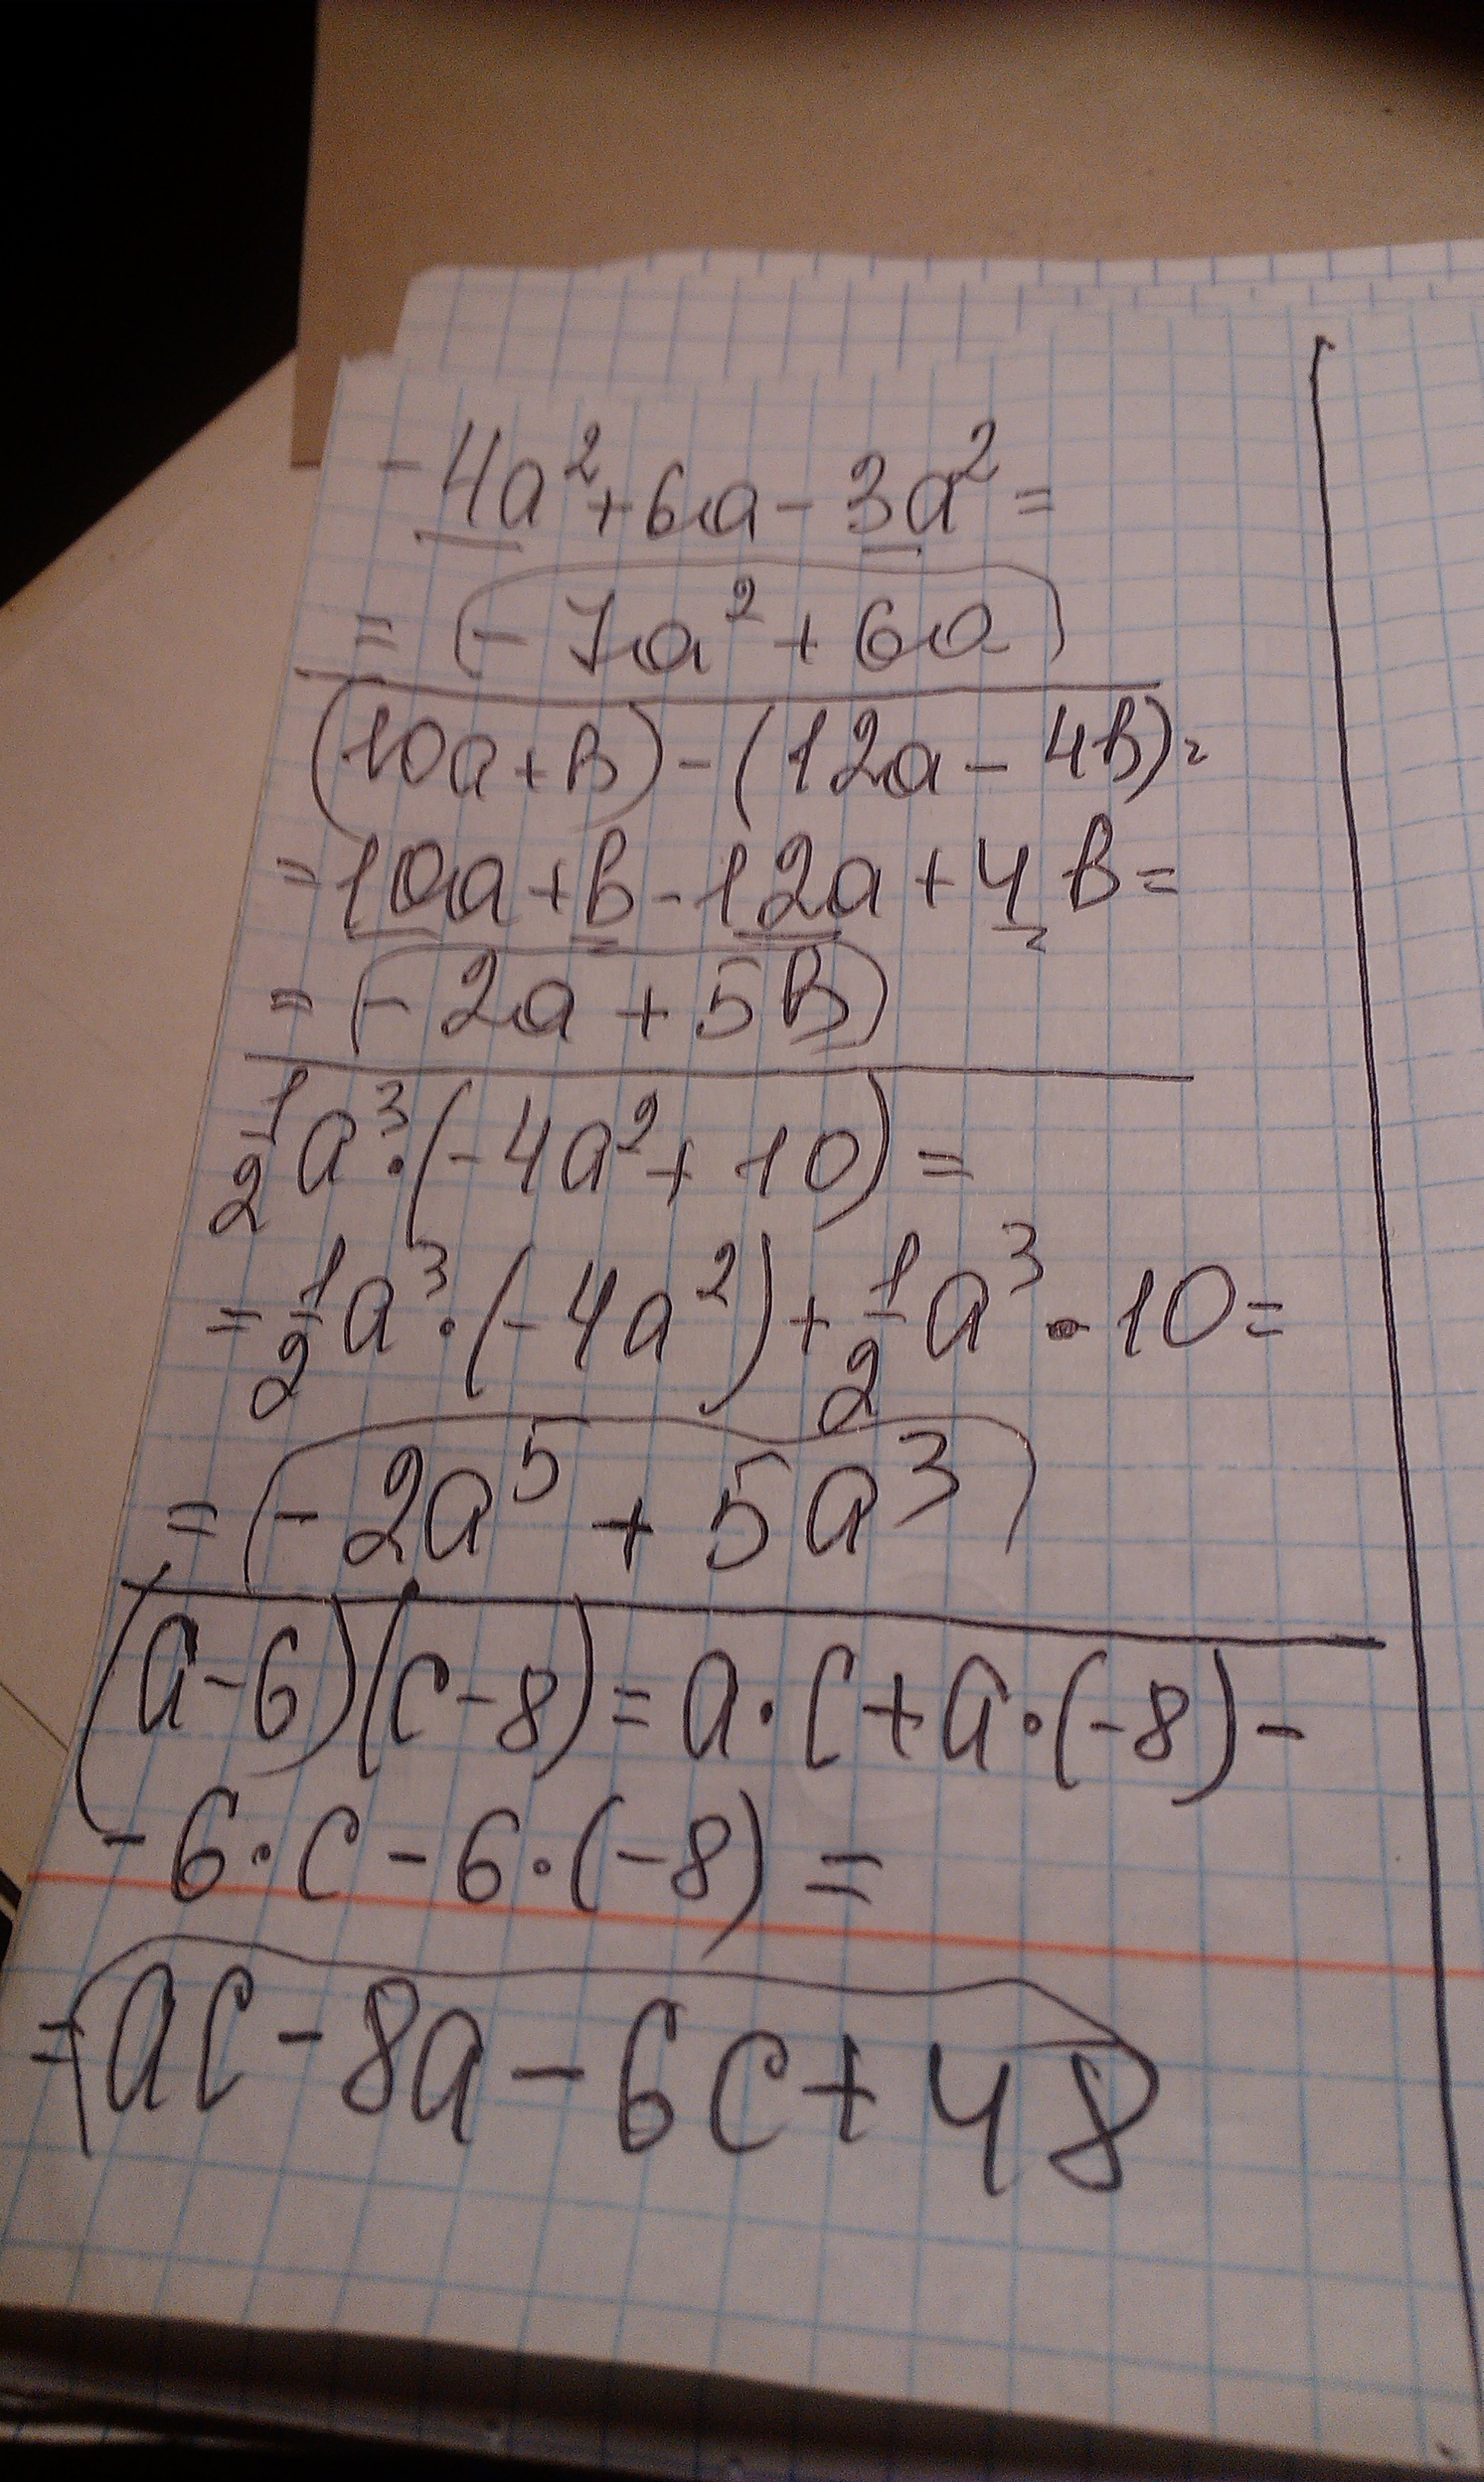 -4a²+6a-3a²=
= -7a²+6a
(10a+в)-(12a-4в)=
=10a+в-12a+4в=
= -2a+5в
1/2a³·(-4a²+10)=
=1/2a³·(-4a²)+1/2a³·10=
= -2a⁵+5a³
(a-6)(c-8)=a·c+a·(-8)-
-6·c-6·(-8)=
=ac-8a-6c+48